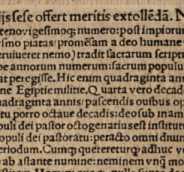 ijs sese offert meritis extollēdā. N
tenovigesimoq; numero: post impiorum
rsmo piatas: promeām a deo humane
eruiverer nemo) tradit sacrarum script
be annorum numerum sacrum populu
at peregisse. Hic enim quadraginta ann
ne Egiptie militie, Q uarta vero decad
quadraginta annis: pascendis ouibus op
etu. porro octaue decadis ideo sub iman
puli dei pastor octogenarius est instituti
opuli dei pastoratu: peracto omni diuur
eriodum. Cumq; quereretur q; adhuc v
ab astante numine: neminem vnq; mo